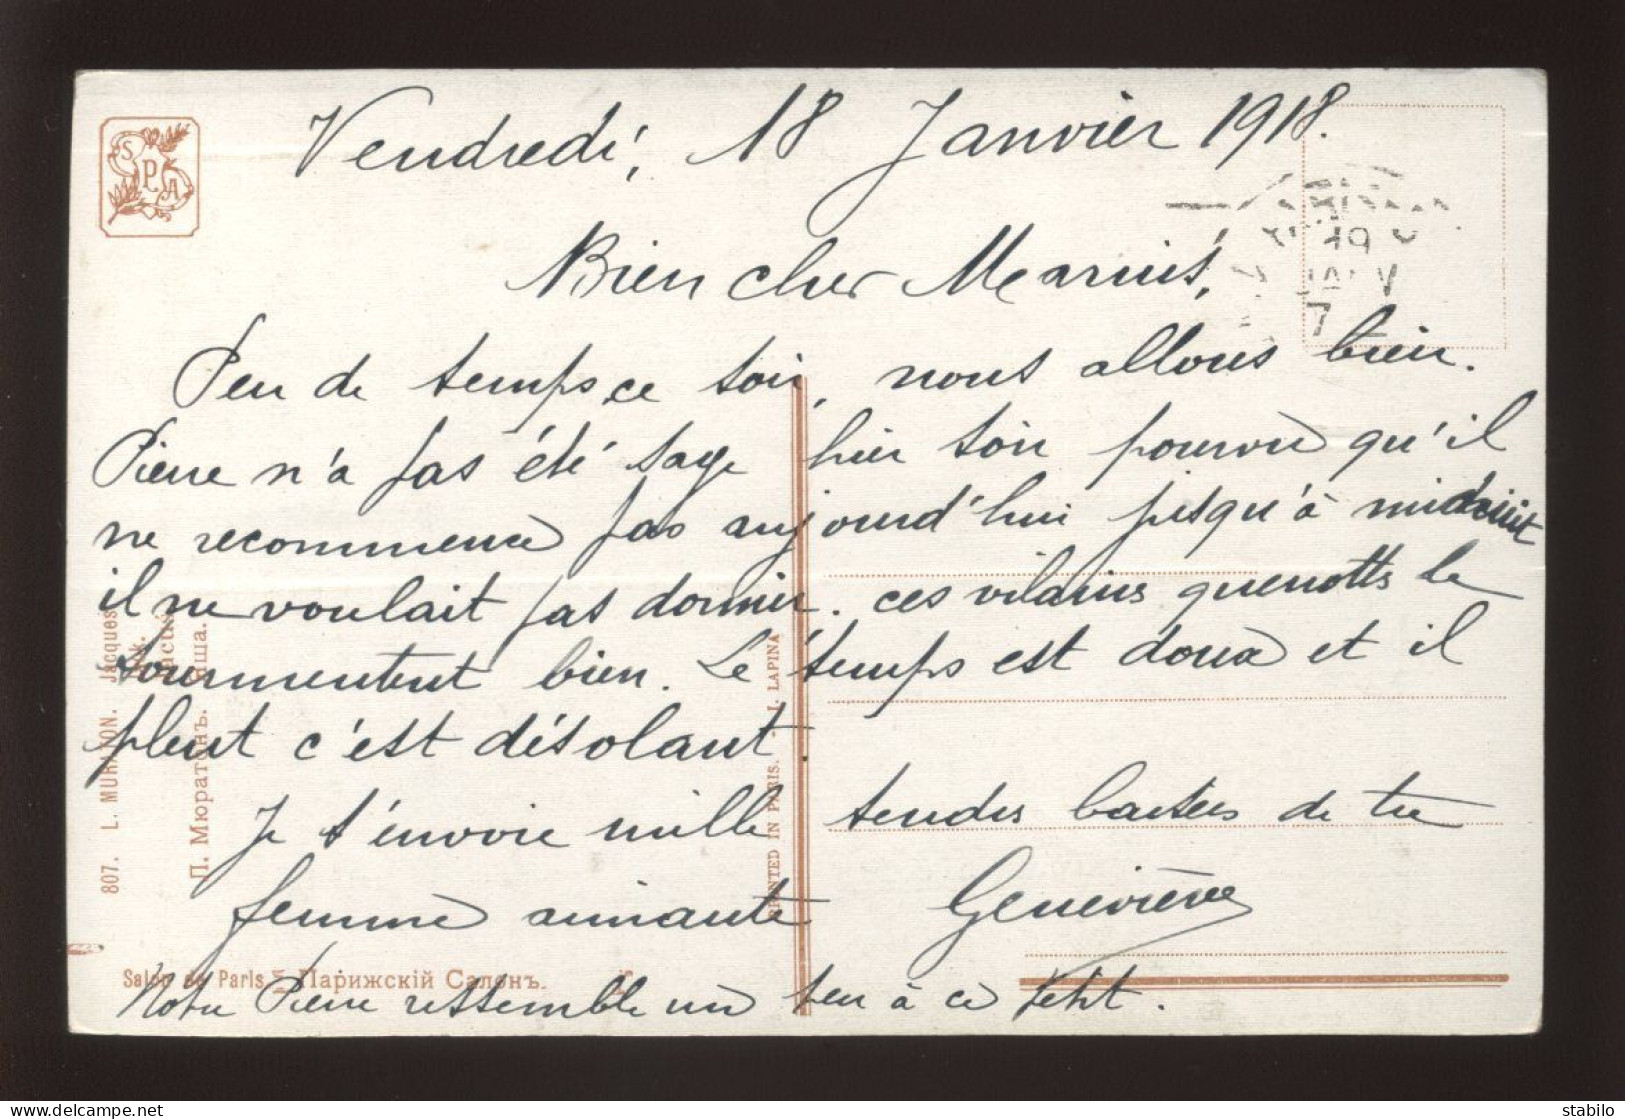 Vendredi, 18 Janvier 1918.
Bien cher Marius,
Peu de temps ce soir, nous allons bien.
Pierre n'a pas été sage hier soir pourvu qu'il
ne recommence pas aujourd'hui jusqu'à minuit
il ne voulait pas dormir. ces vilains quenottes le
tourmentent bien. Le temps est doux et il
pleut c'est désolant.
Je t'envoie mille tendres baisers de ta
femme aimante Geneviève
Notre Pierre ressemble un peu à ce petit.
SPA
19
7
807. L. MURATON. Jacques
П. Мюратонъ.
PRINTED IN PARIS. - I. LAPINA
Salon de Paris Парижскій Салонъ.
Stabilo